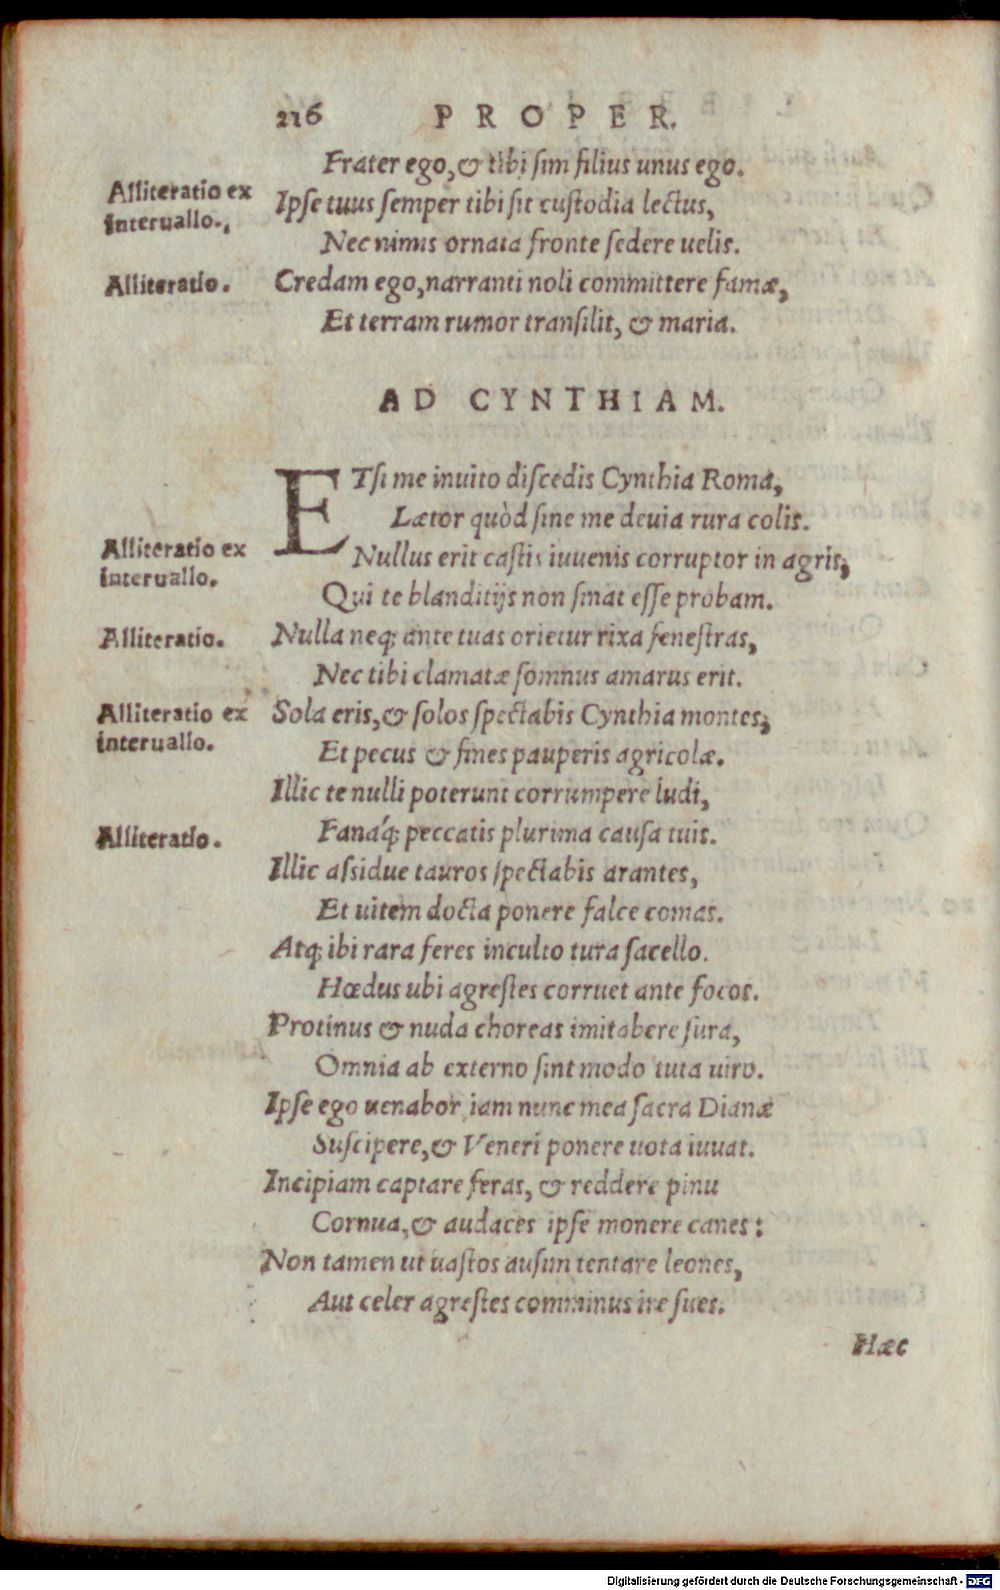 216 PROPER.
Frater ego, & tibi sim filius unus ego.
Alliteratio ex
interuallo.
Ipse tuus semper tibi sit custodia lectus,
Nec nimis ornata fronte sedere uelis.
Alliteratio.
Credam ego, narranti noli committere famæ,
Et terram rumor transilit, & maria.
AD CYNTHIAM.
ETsi me inuito discedis Cynthia Roma,
Lætor quòd sine me deuia rura colis.
Alliteratio ex
interuallo.
Nullus erit castis iuuenis corruptor in agris,
Qui te blanditijs non sinat esse probam.
Alliteratio.
Nulla neq; ante tuas orietur rixa fenestras,
Nec tibi clamatæ somnus amarus erit.
Alliteratio ex
interuallo.
Sola eris, & solos spectabis Cynthia montes,
Et pecus & fines pauperis agricolæ.
Illic te nulli poterunt corrumpere ludi,
Alliteratio.
Fanáq; peccatis plurima causa tuis.
Illic assidue tauros spectabis arantes,
Et uitem docta ponere falce comas.
Atq; ibi rara feres inculto tura sacello.
Hœdus ubi agrestes corruet ante focos.
Protinus & nuda choreas imitabere sura,
Omnia ab externo sint modo tuta uiro.
Ipse ego uenabor iam nunc mea sacra Dianæ
Suscipere, & Veneri ponere uota iuuat.
Incipiam captare feras, & reddere pinu
Cornua, & audaces ipse monere canes:
Non tamen ut uastos ausim tentare leones,
Aut celer agrestes comminus ire sues.
Hæc
Digitalisierung gefördert durch die Deutsche Forschungsgemeinschaft - DFG